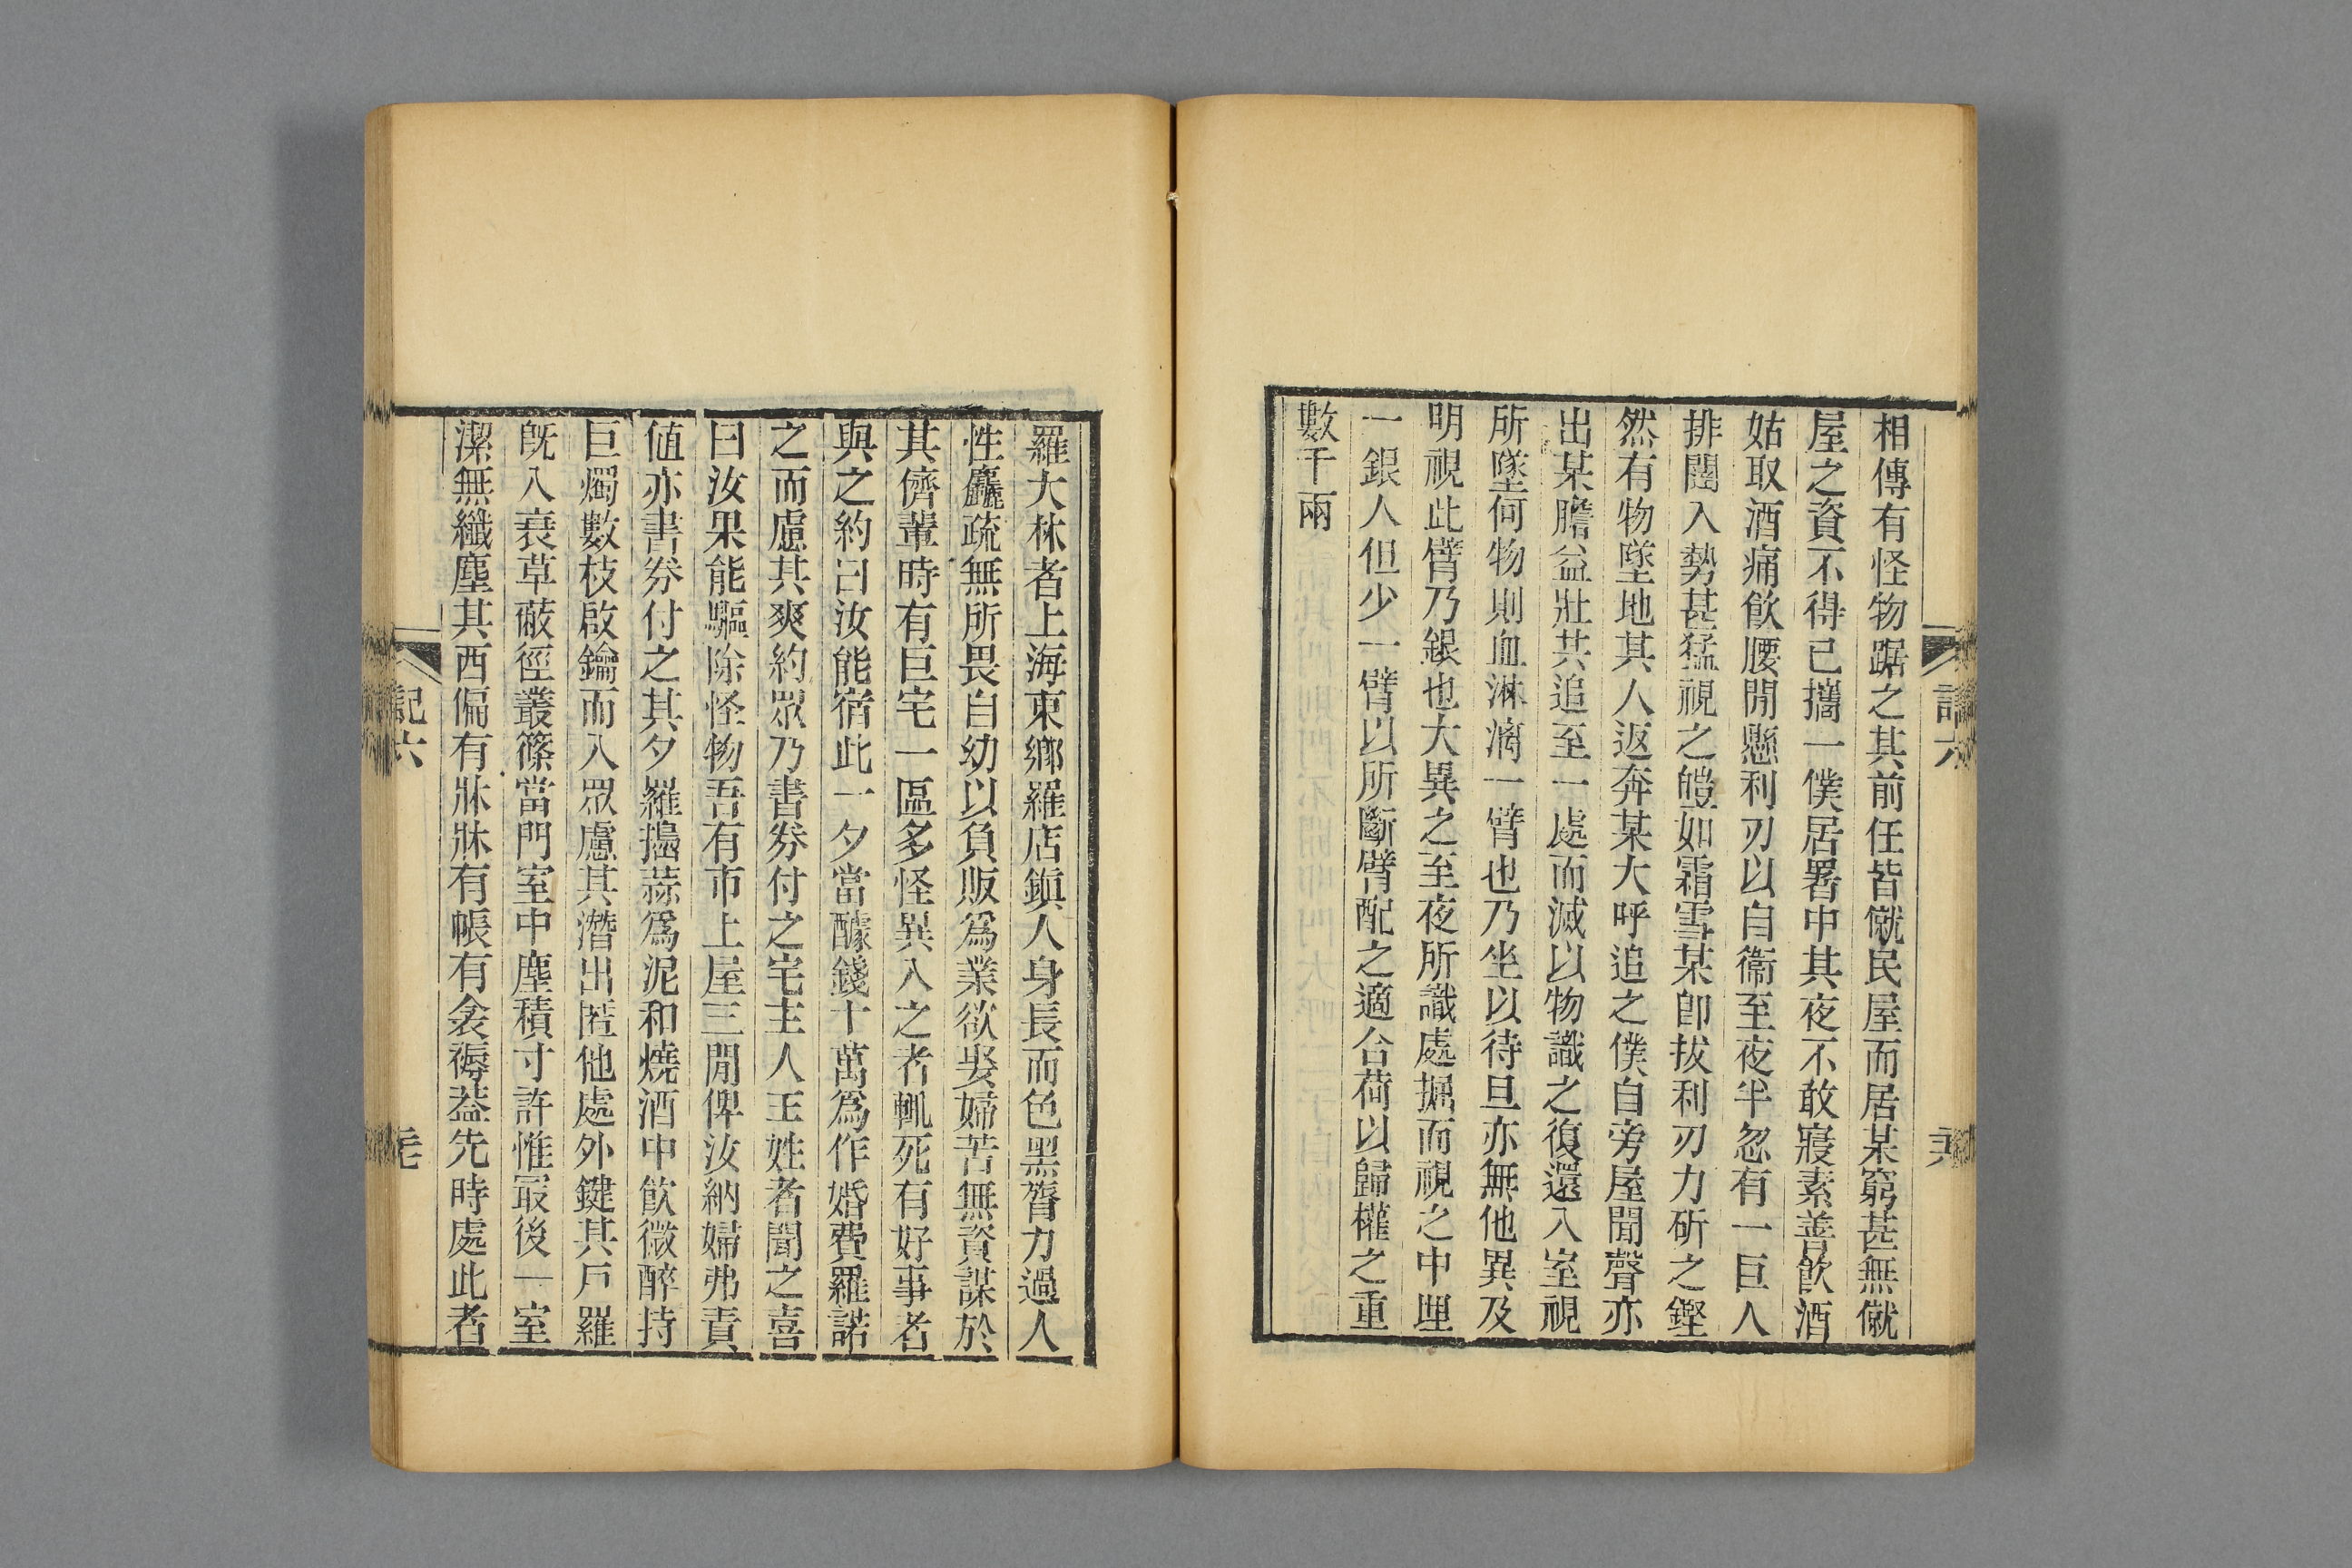 相傳有怪物踞之其前任皆僦民屋而居某窮甚無僦
屋之資不得已攜一僕居署中其夜不敢寢素善飲酒
姑取酒痛飲腰閒懸利刃以自衞至夜半忽有一巨人
排闥入勢甚猛視之皚如霜雪某卽拔利刃力斫之鏗
然有物墜地其人返奔某大呼追之僕自旁屋聞聲亦
出某膽益壯共追至一處而滅以物識之復還入室視
所墜何物則血淋漓一臂也乃坐以待旦亦無他異及
明視此臂乃銀也大異之至夜所識處掘而視之中埋
一銀人但少一臂以所斷臂配之適合荷以歸權之重
數千兩
羅大林者上海東鄉羅店鎮人身長而色黑膂力過人
性麤疏無所畏自幼以負販爲業欲娶婦苦無資謀於
其儕輩時有巨宅一區多怪異入之者輒死有好事者
與之約曰汝能宿此一夕當醵錢十萬爲作婚費羅諾
之而慮其爽約眾乃書券付之宅主人王姓者聞之喜
曰汝果能驅除怪物吾有市上屋三閒俾汝納婦弗責
値亦書券付之其夕羅搗蒜爲泥和燒酒中飲微醉持
巨燭數枝啟鑰而入眾慮其潛出匿他處外鍵其戸羅
旣入衰草蔽徑叢篠當門室中塵積寸許惟最後一室
潔無纖塵其西偏有牀牀有帳有衾褥葢先時處此者
記六